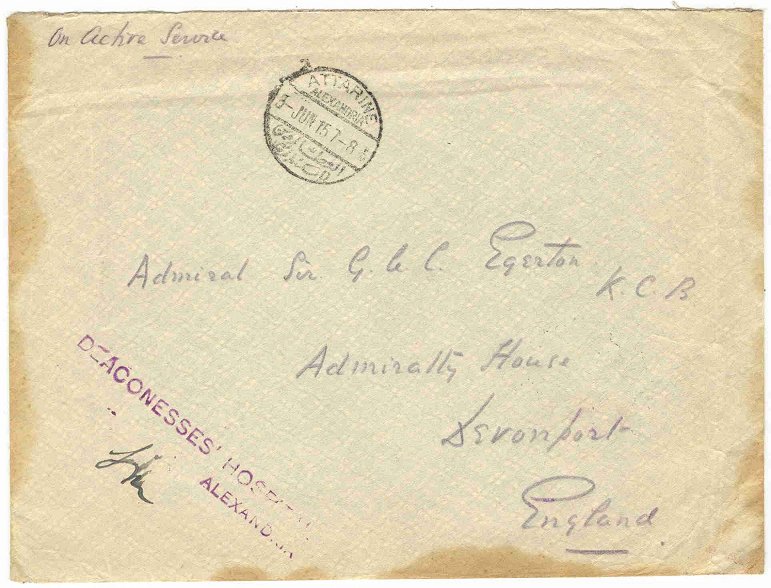 On Active Service
ATTARINE
ALEXANDRIE
3-JUN 15 7-8
D
Admiral Sir G. Le C. Egerton
K.C.B
Admiralty House
Devonport
England
DEACONESSES' HOSPITAL
ALEXANDRIA